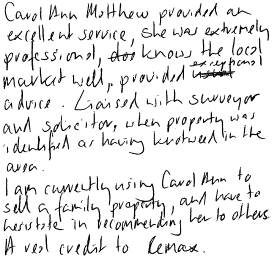 Carol Ann Matthew provided an
excellent service, she was extremely
professional, knows the local
market well, provided exceptional
advice. Liaised with surveyor
and solicitor, when property was
identified as having knotweed in the
area.
I am currently using Carol Ann to
sell a family property, and have to
hesitate in recommending her to others
A real credit to Remax.